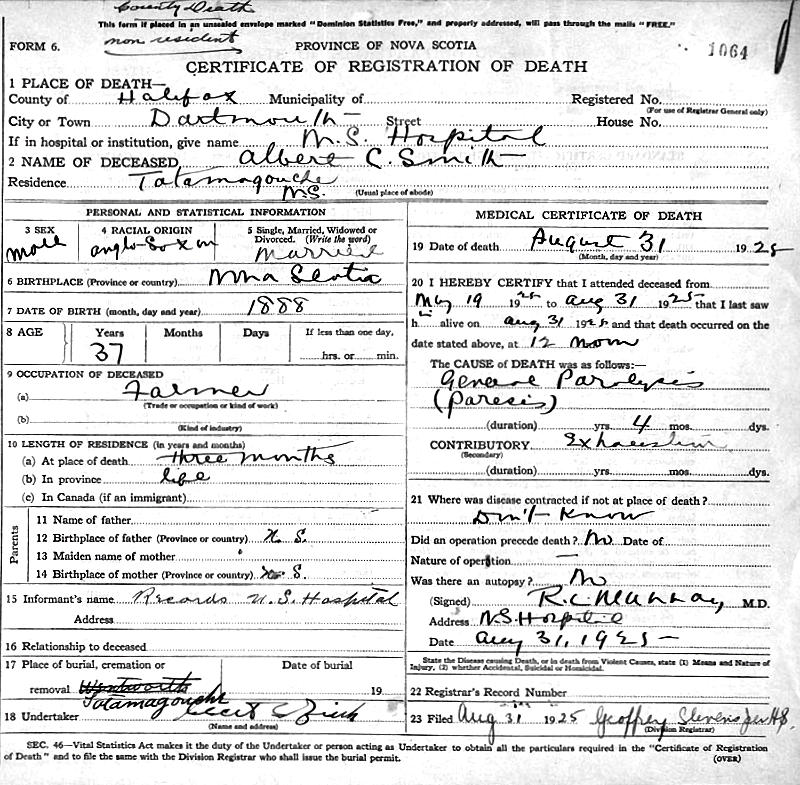 County Death
This form if placed in an unsealed envelope marked "Dominion Statistics Free," and properly addressed, will pass through the mails "FREE."
non resident
FORM 6.
PROVINCE OF NOVA SCOTIA
1064
CERTIFICATE OF REGISTRATION OF DEATH
1 PLACE OF DEATH—
County of Halifax Municipality of Registered No.
(For use of Registrar General only)
City or Town Dartmouth Street House No.
If in hospital or institution, give name N.S. Hospital
2 NAME OF DECEASED Albert C. Smith
Residence Tatamagouche
N.S. (Usual place of abode)
PERSONAL AND STATISTICAL INFORMATION
3 SEX
male
4 RACIAL ORIGIN
anglo Saxon
5 Single, Married, Widowed or Divorced. (Write the word)
Married
6 BIRTHPLACE (Province or country) Nova Scotia
7 DATE OF BIRTH (month, day and year) 1888
8 AGE Years Months Days If less than one day,
37 hrs. or min.
9 OCCUPATION OF DECEASED
(a) Farmer
(Trade or occupation or kind of work)
(b)
(Kind of industry)
10 LENGTH OF RESIDENCE (in years and months)
(a) At place of death three months
(b) In province life
(c) In Canada (if an immigrant)
Parents
11 Name of father
12 Birthplace of father (Province or country) N. S.
13 Maiden name of mother
14 Birthplace of mother (Province or country) N. S.
15 Informant's name Records N.S. Hospital
Address
16 Relationship to deceased
17 Place of burial, cremation or Date of burial
removal Wentworth 19
Tatamagouche
18 Undertaker
(Name and address)
MEDICAL CERTIFICATE OF DEATH
19 Date of death August 31 1925
(Month, day and year)
20 I HEREBY CERTIFY that I attended deceased from
May 19 1925 to Aug 31 1925 that I last saw
him alive on Aug 31 1925 and that death occurred on
date stated above, at 12 noon
The CAUSE OF DEATH was as follows:—
General Paralysis
(Paresis)
(duration) yrs. 4 mos. dys.
CONTRIBUTORY Exhaustion
(Secondary)
(duration) yrs. mos. dys.
21 Where was disease contracted if not at place of death?
Don't Know
Did an operation precede death? No Date of
Nature of operation —
Was there an autopsy? No
(Signed) R.C. Murray M.D.
Address N.S. Hospital
Date Aug 31, 1925
State the Disease causing Death, or in death from Violent Causes, state (1) Means and Nature of Injury, (2) whether Accidental, Suicidal or Homicidal.
22 Registrar's Record Number
23 Filed Aug 31 1925 Geoffrey Stevens
(Division Registrar)
SEC. 46—Vital Statistics Act makes it the duty of the Undertaker or person acting as Undertaker to obtain all the particulars required in the "Certificate of Registration
of Death" and to file the same with the Division Registrar who shall issue the burial permit. (OVER)